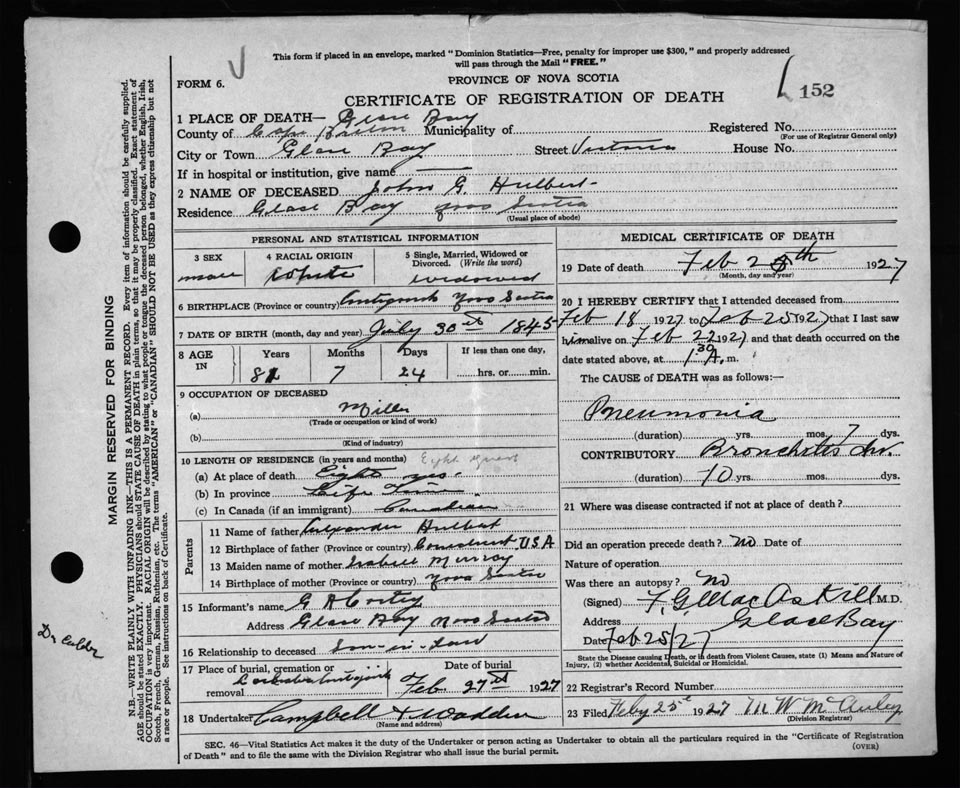 This form if placed in an envelope, marked "Dominion Statistics—Free, penalty for improper use $300," and properly addressed
will pass through the Mail "FREE."
FORM 6.
PROVINCE OF NOVA SCOTIA
152
CERTIFICATE OF REGISTRATION OF DEATH
1 PLACE OF DEATH— Glace Bay
County of Cape Breton Municipality of
Registered No.
(For use of Registrar General only)
City or Town Glace Bay Street Victoria House No.
If in hospital or institution, give name
2 NAME OF DECEASED John G. Hulbert
Residence Glace Bay Nova Scotia
(Usual place of abode)
PERSONAL AND STATISTICAL INFORMATION
3 SEX
male
4 RACIAL ORIGIN
White
5 Single, Married, Widowed or
Divorced. (Write the word)
Widowed
6 BIRTHPLACE (Province or country) Nova Scotia
7 DATE OF BIRTH (month, day and year) July 30 1845
8 AGE
IN
Years
Months
Days
If less than one day,
81 7 24
hrs. or min.
9 OCCUPATION OF DECEASED
(a) Miller
(Trade or occupation or kind of work)
(b)
(Kind of industry)
10 LENGTH OF RESIDENCE (in years and months) Eight years
(a) At place of death Eight yrs.
(b) In province Life Time
(c) In Canada (if an immigrant) Canadian
Parents
11 Name of father Hulbert
12 Birthplace of father (Province or country) USA
13 Maiden name of mother Isabell Murray
14 Birthplace of mother (Province or country) Nova Scotia
15 Informant's name G A
Address Glace Bay Nova Scotia
16 Relationship to deceased Son-in-Law
17 Place of burial, cremation or
removal
Date of burial
Feb 27 1927
18 Undertaker Campbell & Wadden
(Name and address)
MEDICAL CERTIFICATE OF DEATH
19 Date of death Feb 25th 1927
(Month, day and year)
20 I HEREBY CERTIFY that I attended deceased from
Feb 18 1927 to Feb 25 1927 that I last saw
him alive on Feb 22 1927 and that death occurred on the
date stated above, at 1.30 A. m.
The CAUSE of DEATH was as follows:—
Pneumonia
(duration) yrs. mos. 7 dys.
CONTRIBUTORY Bronchitis chr.
(duration) 10 yrs. mos. dys.
21 Where was disease contracted if not at place of death?
Did an operation precede death? No Date of
Nature of operation
Was there an autopsy? No
(Signed) F. G. MacAskill M.D.
Address Glace Bay
Date Feb 25/27
State the Disease causing Death, or in death from Violent Causes, state (1) Means and Nature of
Injury, (2) whether Accidental, Suicidal or Homicidal.
22 Registrar's Record Number
23 Filed Feby 25 1927 M W McAuley
(Division Registrar)
SEC. 46—Vital Statistics Act makes it the duty of the Undertaker or person acting as Undertaker to obtain all the particulars required in the "Certificate of Registration
of Death" and to file the same with the Division Registrar who shall issue the burial permit.
(OVER)
MARGIN RESERVED FOR BINDING
N.B.—WRITE PLAINLY WITH UNFADING INK—THIS IS A PERMANENT RECORD. Every item of information should be carefully supplied.
AGE should be stated EXACTLY. PHYSICIANS should STATE CAUSE OF DEATH in plain terms, so that it may be properly classified. Exact statement of
OCCUPATION is very important. RACIAL ORIGIN will be described by stating to what people or tongue the deceased person belonged, whether English, Irish,
Scotch, French, German, Russian, Ruthenian, etc. The terms "AMERICAN" or "CANADIAN" SHOULD NOT BE USED as they express citizenship but not
a race or people. See instructions on back of Certificate.